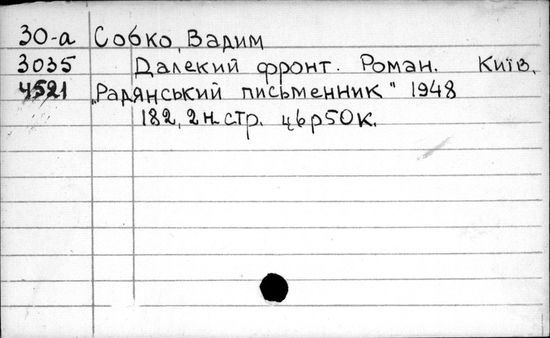 30-а Собко, Вадим
3035 Далекий фронт. Роман. Київ,
4521 „Радянський письменник" 1948
182, 2 н. стр. ц 6 р 50 к.